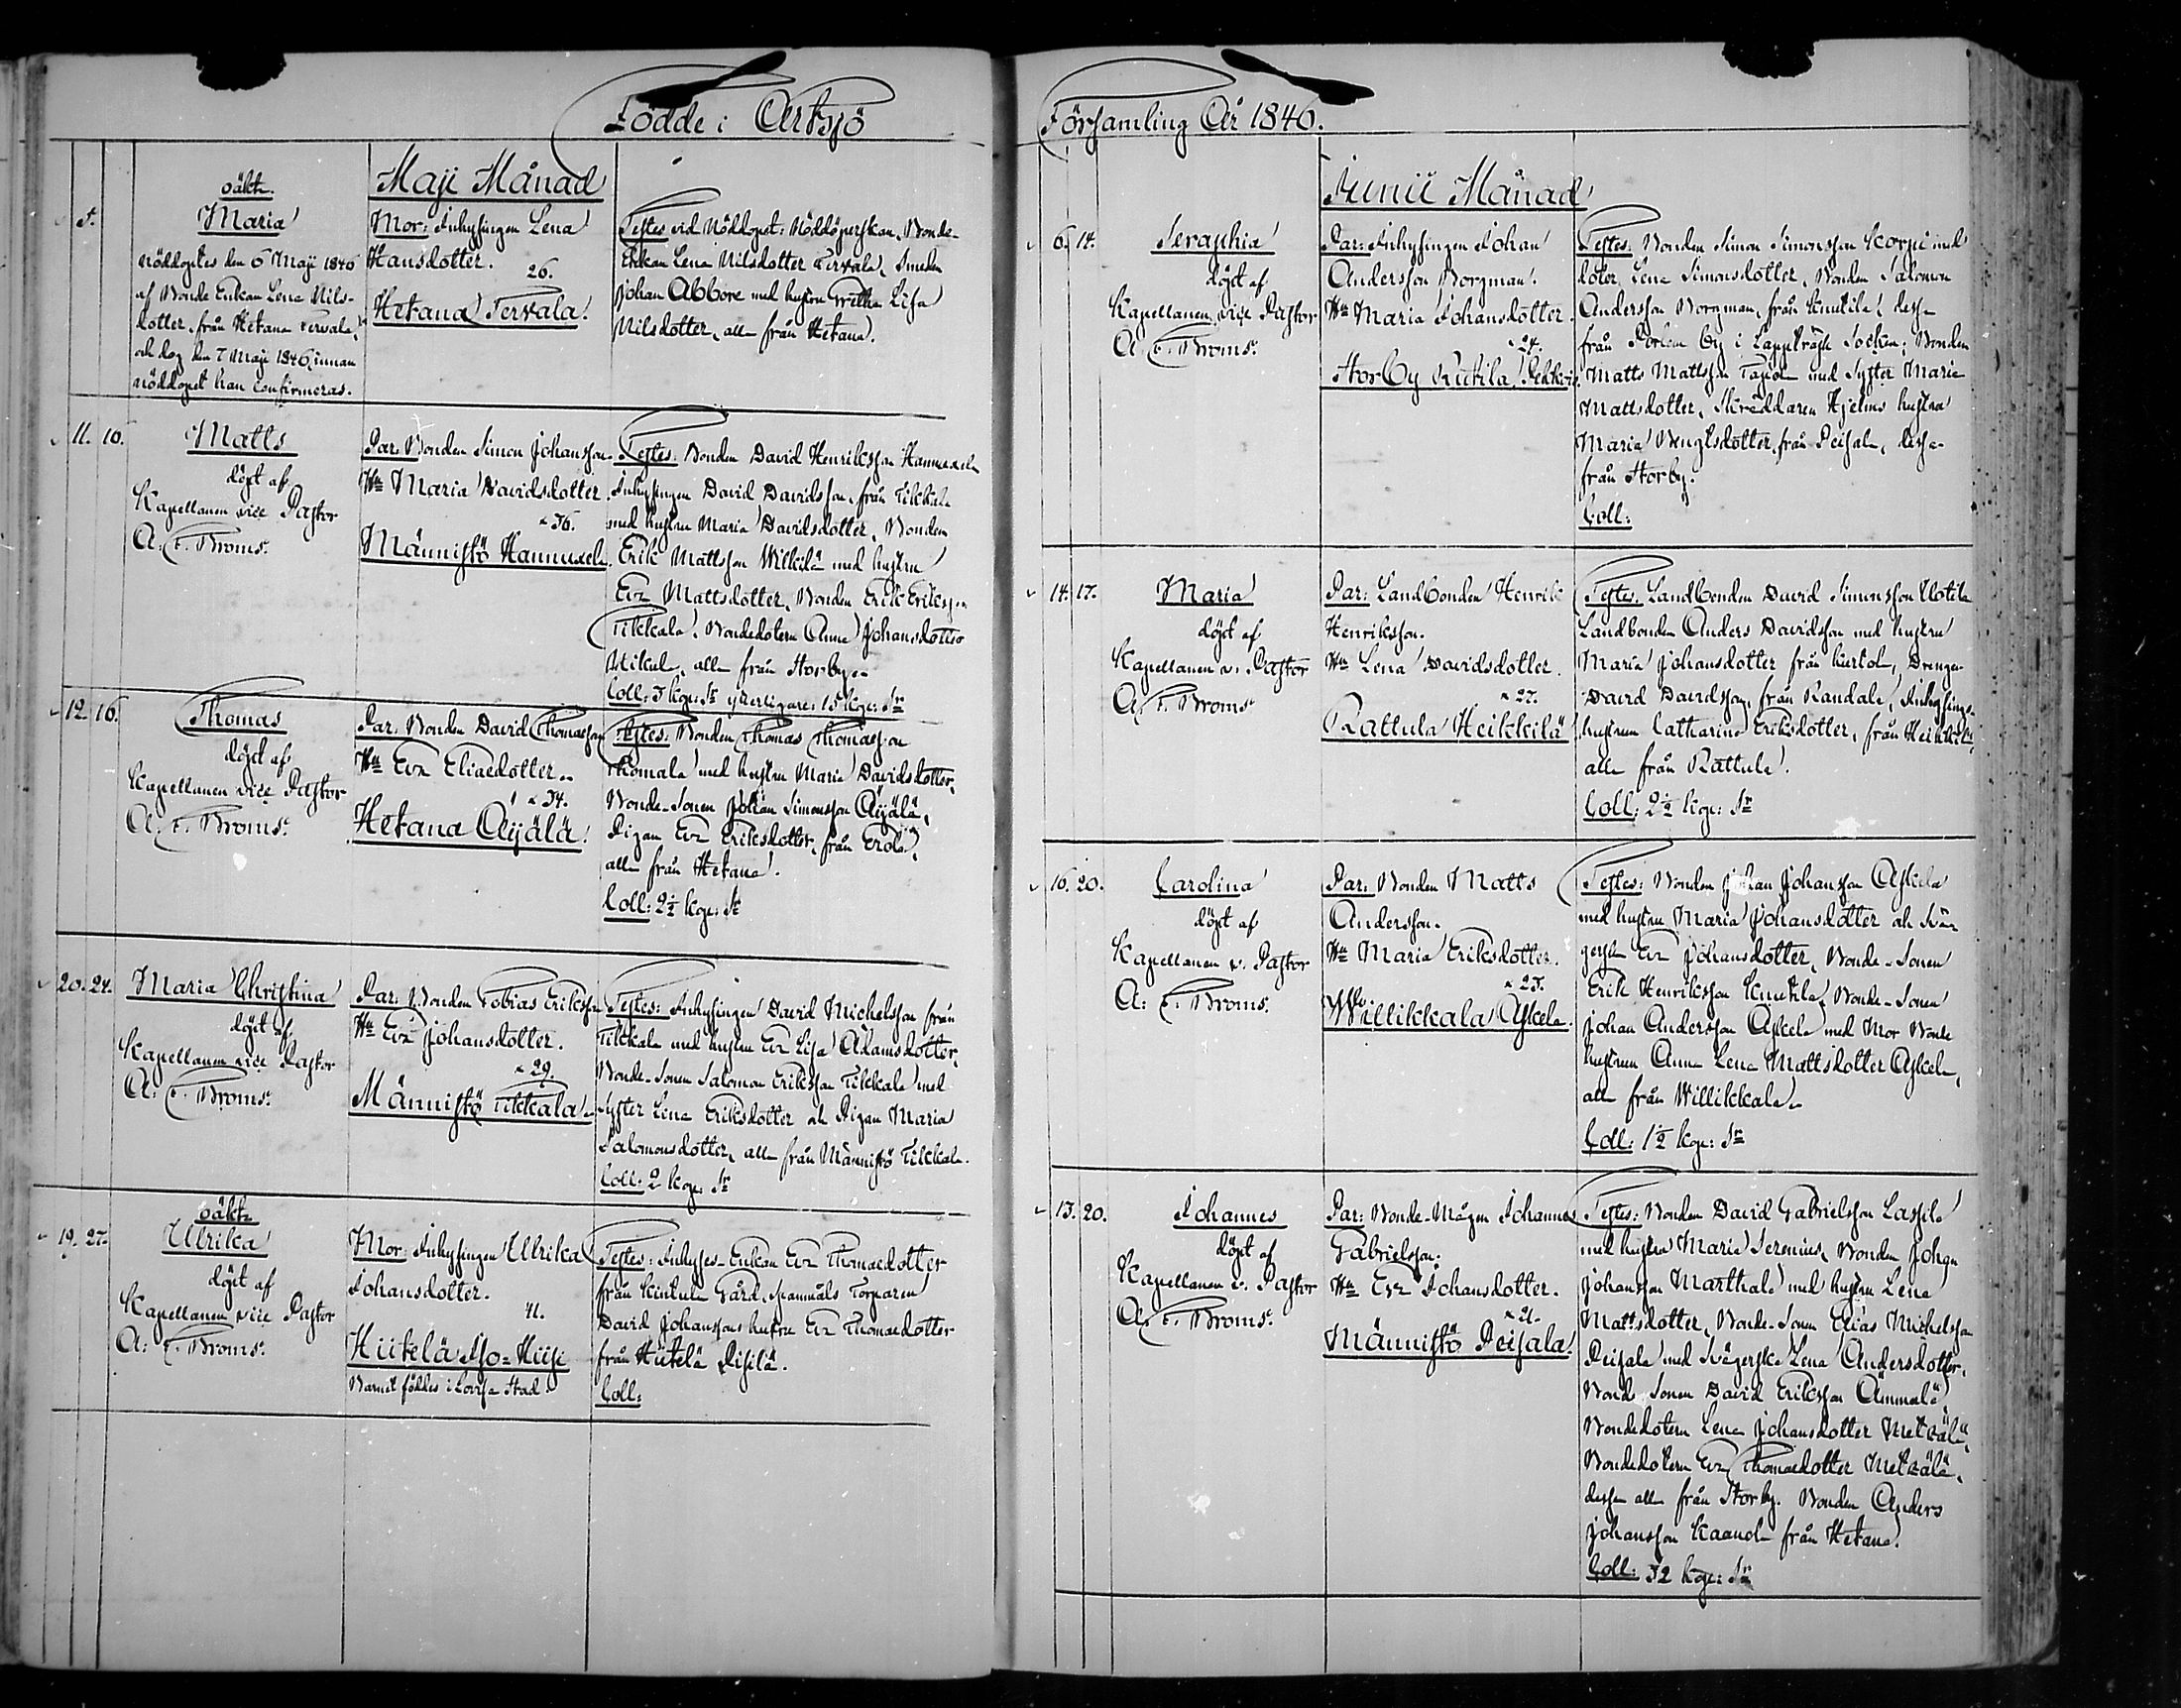 Födde i Artsjö
Maji Månad
5.
oäkta.
Maria
nöddöptes den 6 Maji 1846
af Bonde Enkan Lena Nils-
dotter, från Hetana Tervala,
och dog den 7 Maji 1846, innan
nöddopet han confirmeras.
Mor: Inhysingen Lena
Hansdotter.
26.
Hetana Tervala.
Testes vid Nöddopet: Nöddöperskan, Bonde-
Enkan Lena Nilsdotter Tervala, Smeden
Johan Abbore med hustru Gretha Lisa
Nilsdotter, alla från Hetana.
11. 16.
Matts
döpt af
Kapellanen vice Pastor
A. F. Broms.
Par: Bonden Simon Johansson.
Hu Maria Davidsdotter.
36.
Männistö Hannuxela.
Testes: Bonden David Henriksson Hannuxela
Inhysingen David Davidsson, från Tikkala
med hustru Maria Davidsdotter, Bonden
Erik Mattsson Wilkilä med hustru
Eva Mattsdotter, Bonden Erik Eriksson
Tikkala, Bondedotern Anna Johansdotter
Mikula, alla från Storby.
Coll: 3 kop: Sr ytterligare 15 kop: Sr
12. 16.
Thomas
döpt af
Kapellanen vice Pastor
A. F. Broms.
Par: Bonden David Thomasson
Hu Eva Eliaedotter.
34.
Hetana Äijälä.
Testes: Bonden Thomas Thomasson
Thomala med hustru Maria Davidsdotter,
Bonde-Sonen Johan Simonsson Äijälä,
Pigan Eva Eriksdotter, från Erola,
alla från Hetana.
Coll: 2½ kop: Sr
20. 24.
Maria Christina
döpt af
Kapellanen vice Pastor
A: F. Broms.
Par: Bonden Tobias Eriksson
Hu Eva Johansdotter.
29.
Männistö Tikkala.
Testes: Inhysingen David Michelsson från
Tikkala med hustru Eva Lisa Adamsdotter,
Bonde-Sonen Salomon Eriksson Tikkala med
Syster Lena Eriksdotter och Pigan Maria
Salomonsdotter, alla från Männistö Tikkala.
Coll: 2 kop: Sr
19. 27.
oäkta
Ulrika
döpt af
Kapellanen vice Pastor
A: F. Broms.
Mor: Inhysingen Ulrika
Johansdotter.
41.
Hiitelä Iso-Hiisi
Barnet föddes i Lovisa Stad.
Testes: Inhyses-Enkan Eva Thomaedotter
från Kinttula Gård, Spannmåls Torparen
David Johanssons hustru Eva Thomaedotter
från Hiitelä
Coll:
Församling År 1846.
Junii Månad
6. 14.
Seraphia
döpt af
Kapellanen vice Pastor
A. F. Broms.
Par: Inhysingen Johan
Andersson Borgman.
Hu Maria Johansdotter.
24.
Storby Rutila
Testes: Bonden Simon Simonsson Scorpi med
doter Lena Simonsdotter, Bonden Salomon
Andersson Borgman, från Knutila, dessa
från Porlom by i Lappträsk Socken; Bonden
Matts Mattsson med Syster Maria
Mattsdotter, Skräddaren Hjelms hustru
Maria Bengtsdotter, från Peisala, dessa
från Storby.
Coll:
14. 17.
Maria
döpt af
Kapellanen v. Pastor
A. F. Broms.
Par: Landbonden Henrik
Henriksson.
Hu Lena Davidsdotter.
27.
Rattula Heikkilä
Testes: Landbonden David Simonsson Uotila
Landbonden Anders Davidsson med hustru
Maria Johansdotter från Kurtola, Drengen
David Davidsson, från Randala, Inhysings-
hustrun Catharina Eriksdotter, från Heikkilä,
alla från Rattula.
Coll: 2½ kop: Sr
16. 20.
Carolina
döpt af
Kapellanen v. Pastor
A: F. Broms.
Par: Bonden Matts
Andersson.
Hu Maria Eriksdotter.
25.
Willikkala Askela.
Testes: Bonden Johan Johansson Askela
med hustru Maria Johansdotter och Svä-
gerskan Eva Johansdotter, Bonde-Sonen
Erik Henriksson Knutila, Bonde-Sonen
Johan Andersson Askela med Mor Bonde
hustrun Anna Lena Mattsdotter Askela,
alla från Willikkala.
Coll: 1½ kop: Sr
13. 20.
Johannes
döpt af
Kapellanen v. Pastor
A. F. Broms.
Par: Bonde-Mågen Johannes
Gabrielsson.
Hu Eva Johansdotter.
21.
Männistö Peisala.
Testes: Bonden David Gabrielsson Lassila
med hustru Maria Serenius, Bonden Johan
Johansson Marthala med hustru Lena
Mattsdotter, Bonde-Sonen Elias Michelsson
Peisala med Svägerska Lena Andersdotter,
Bonde Sonen David Eriksson Ämmälä,
Bondedotern Lena Johansdotter Metzälä,
Bondedotern Eva Thomaedotter Metzälä,
dessa alla från Storby. Bonden Anders
Johansson Kaanola från Hetana.
Coll: 32 kop: Sr